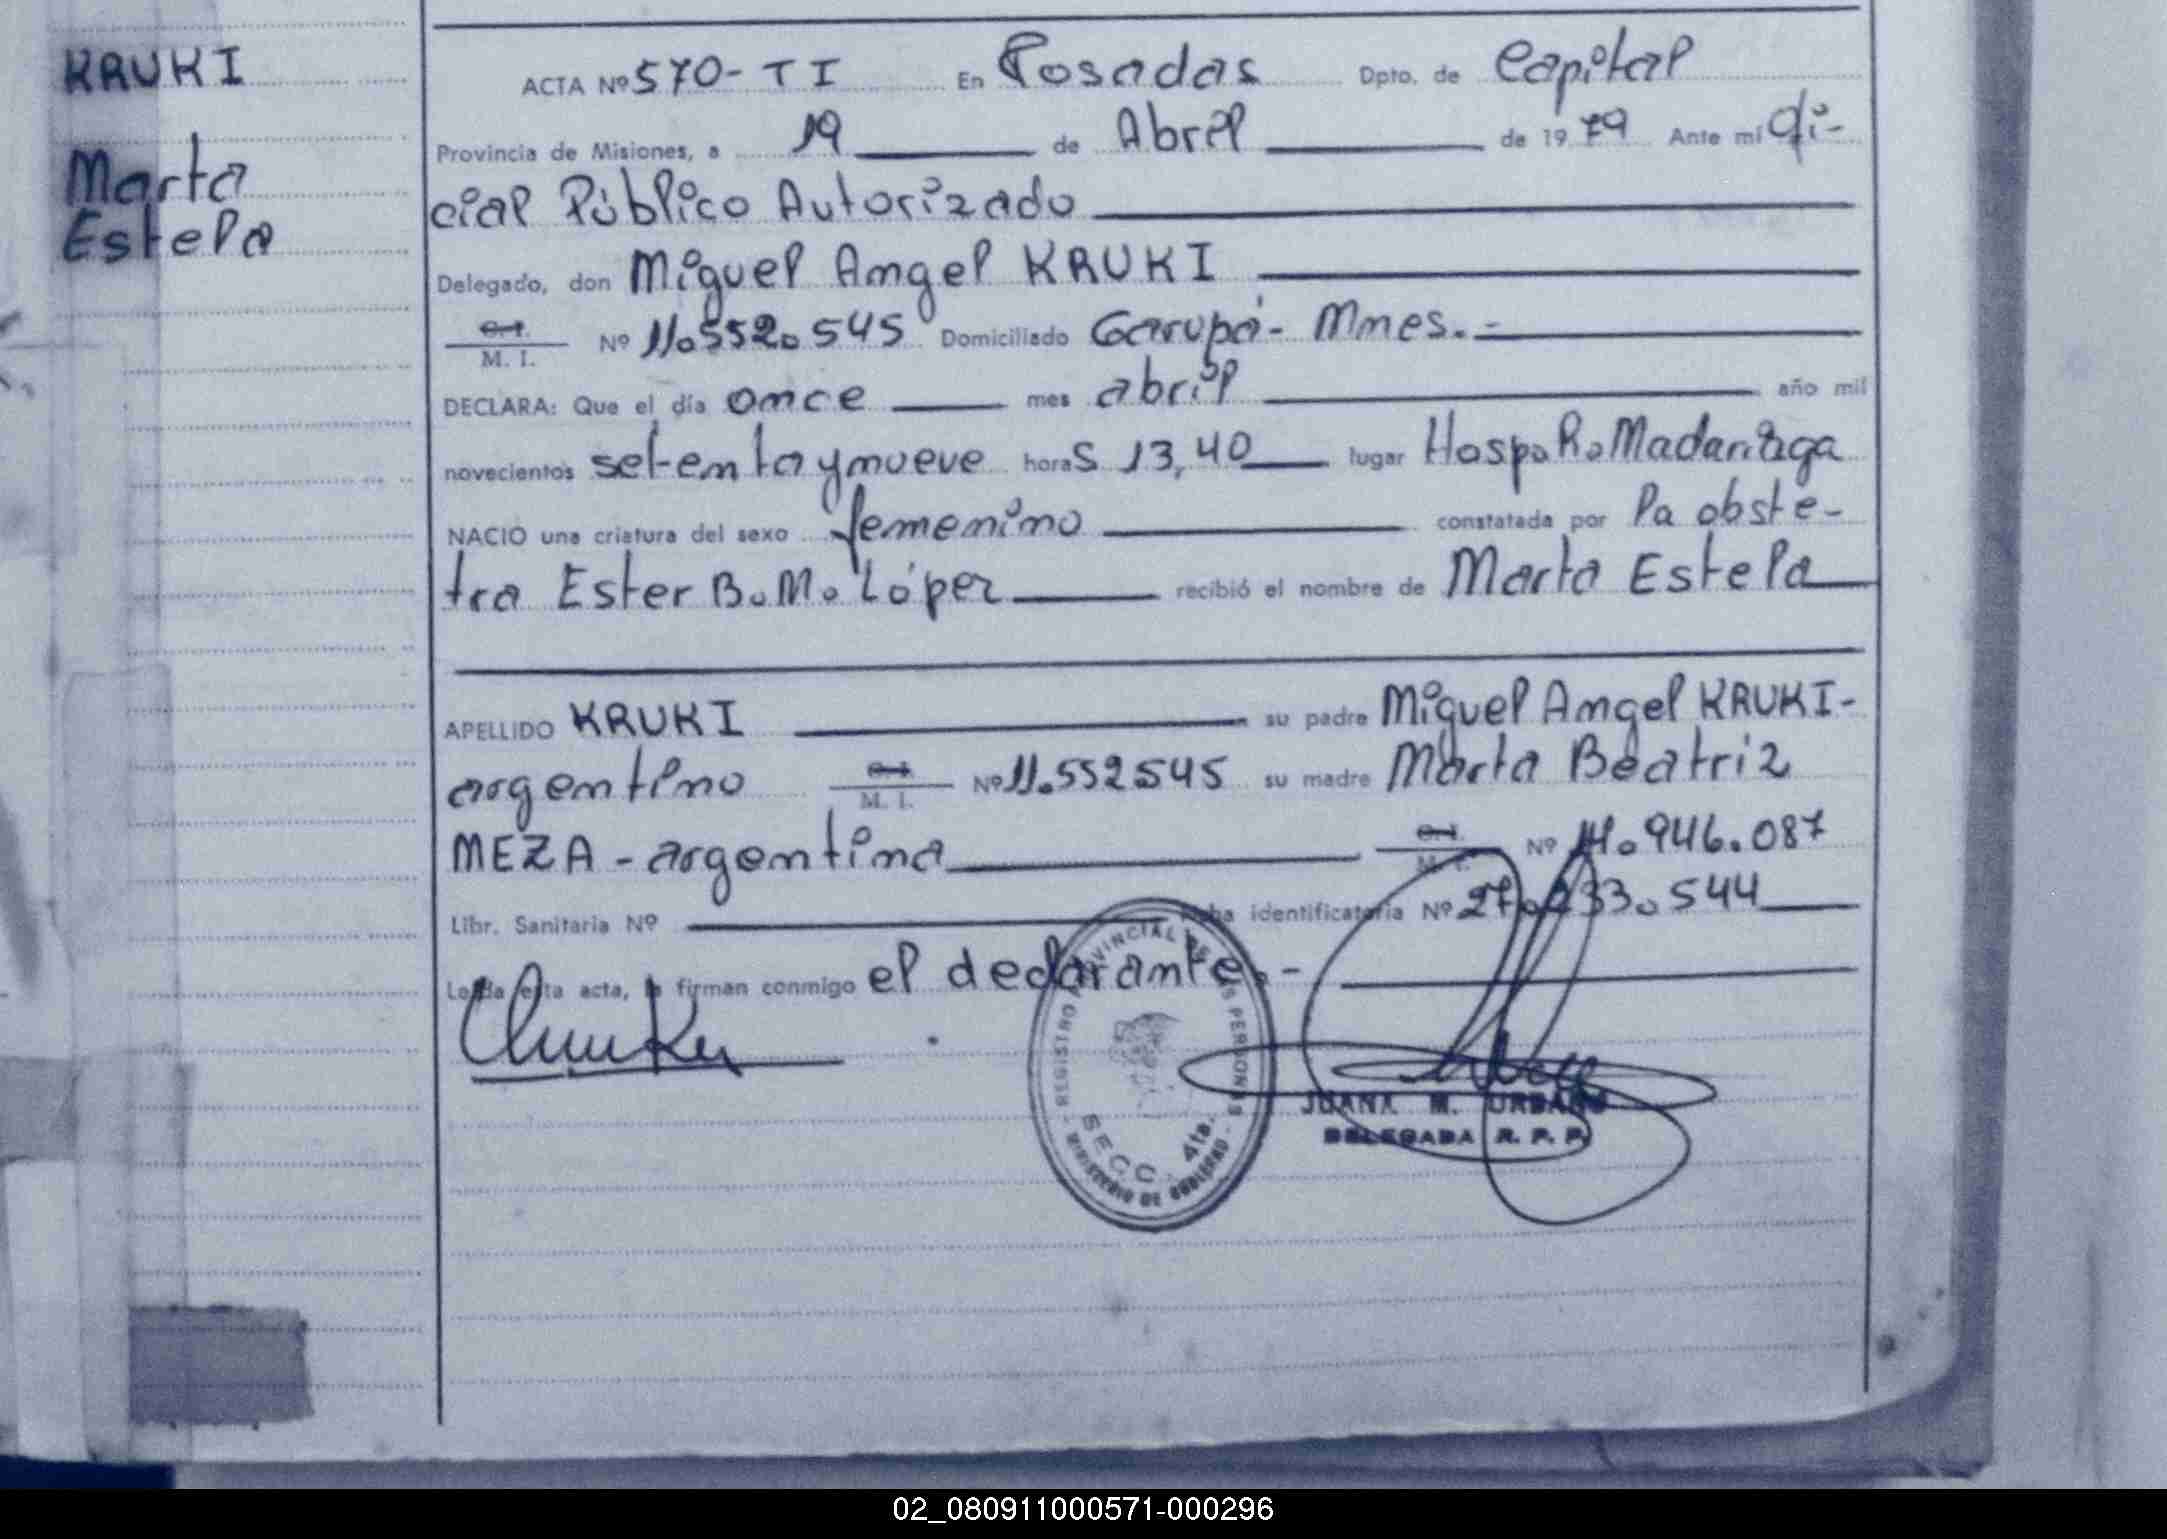 KRUKI
Marta
Estela
ACTA Nº 570- T I En Posadas Dpto. de Capital
Provincia de Misiones, a 19 de Abril de 1979 Ante mí Ofi-
cial Público Autorizado
Delegado, don Miguel Angel KRUKI
C.I. M. I. Nº 11.552.545 Domiciliado Garupá- Mnes.-
DECLARA: Que el día once mes abril año mil
novecientos setenta y nueve horas 13,40 lugar Hosp. R. Madariaga
NACIO una criatura del sexo femenino constatada por la obste-
tra Ester B. M. López recibió el nombre de Marta Estela
APELLIDO KRUKI su padre Miguel Angel KRUKI-
argentino C.I. M. I. Nº 11.552545 su madre Marta Beatriz
MEZA - argentina C.I. M. I. Nº 14.946.087
Libr. Sanitaria Nº Ficha identificatoria Nº 27.233.544
Leída esta acta, la firman conmigo el declarante.-
REGISTRO PROVINCIAL DE LAS PERSONAS
SECC. 4ta.
- MINISTERIO DE GOBIERNO -
JUANA M. URBANO
DELEGADA R. P. P.
02_080911000571-000296